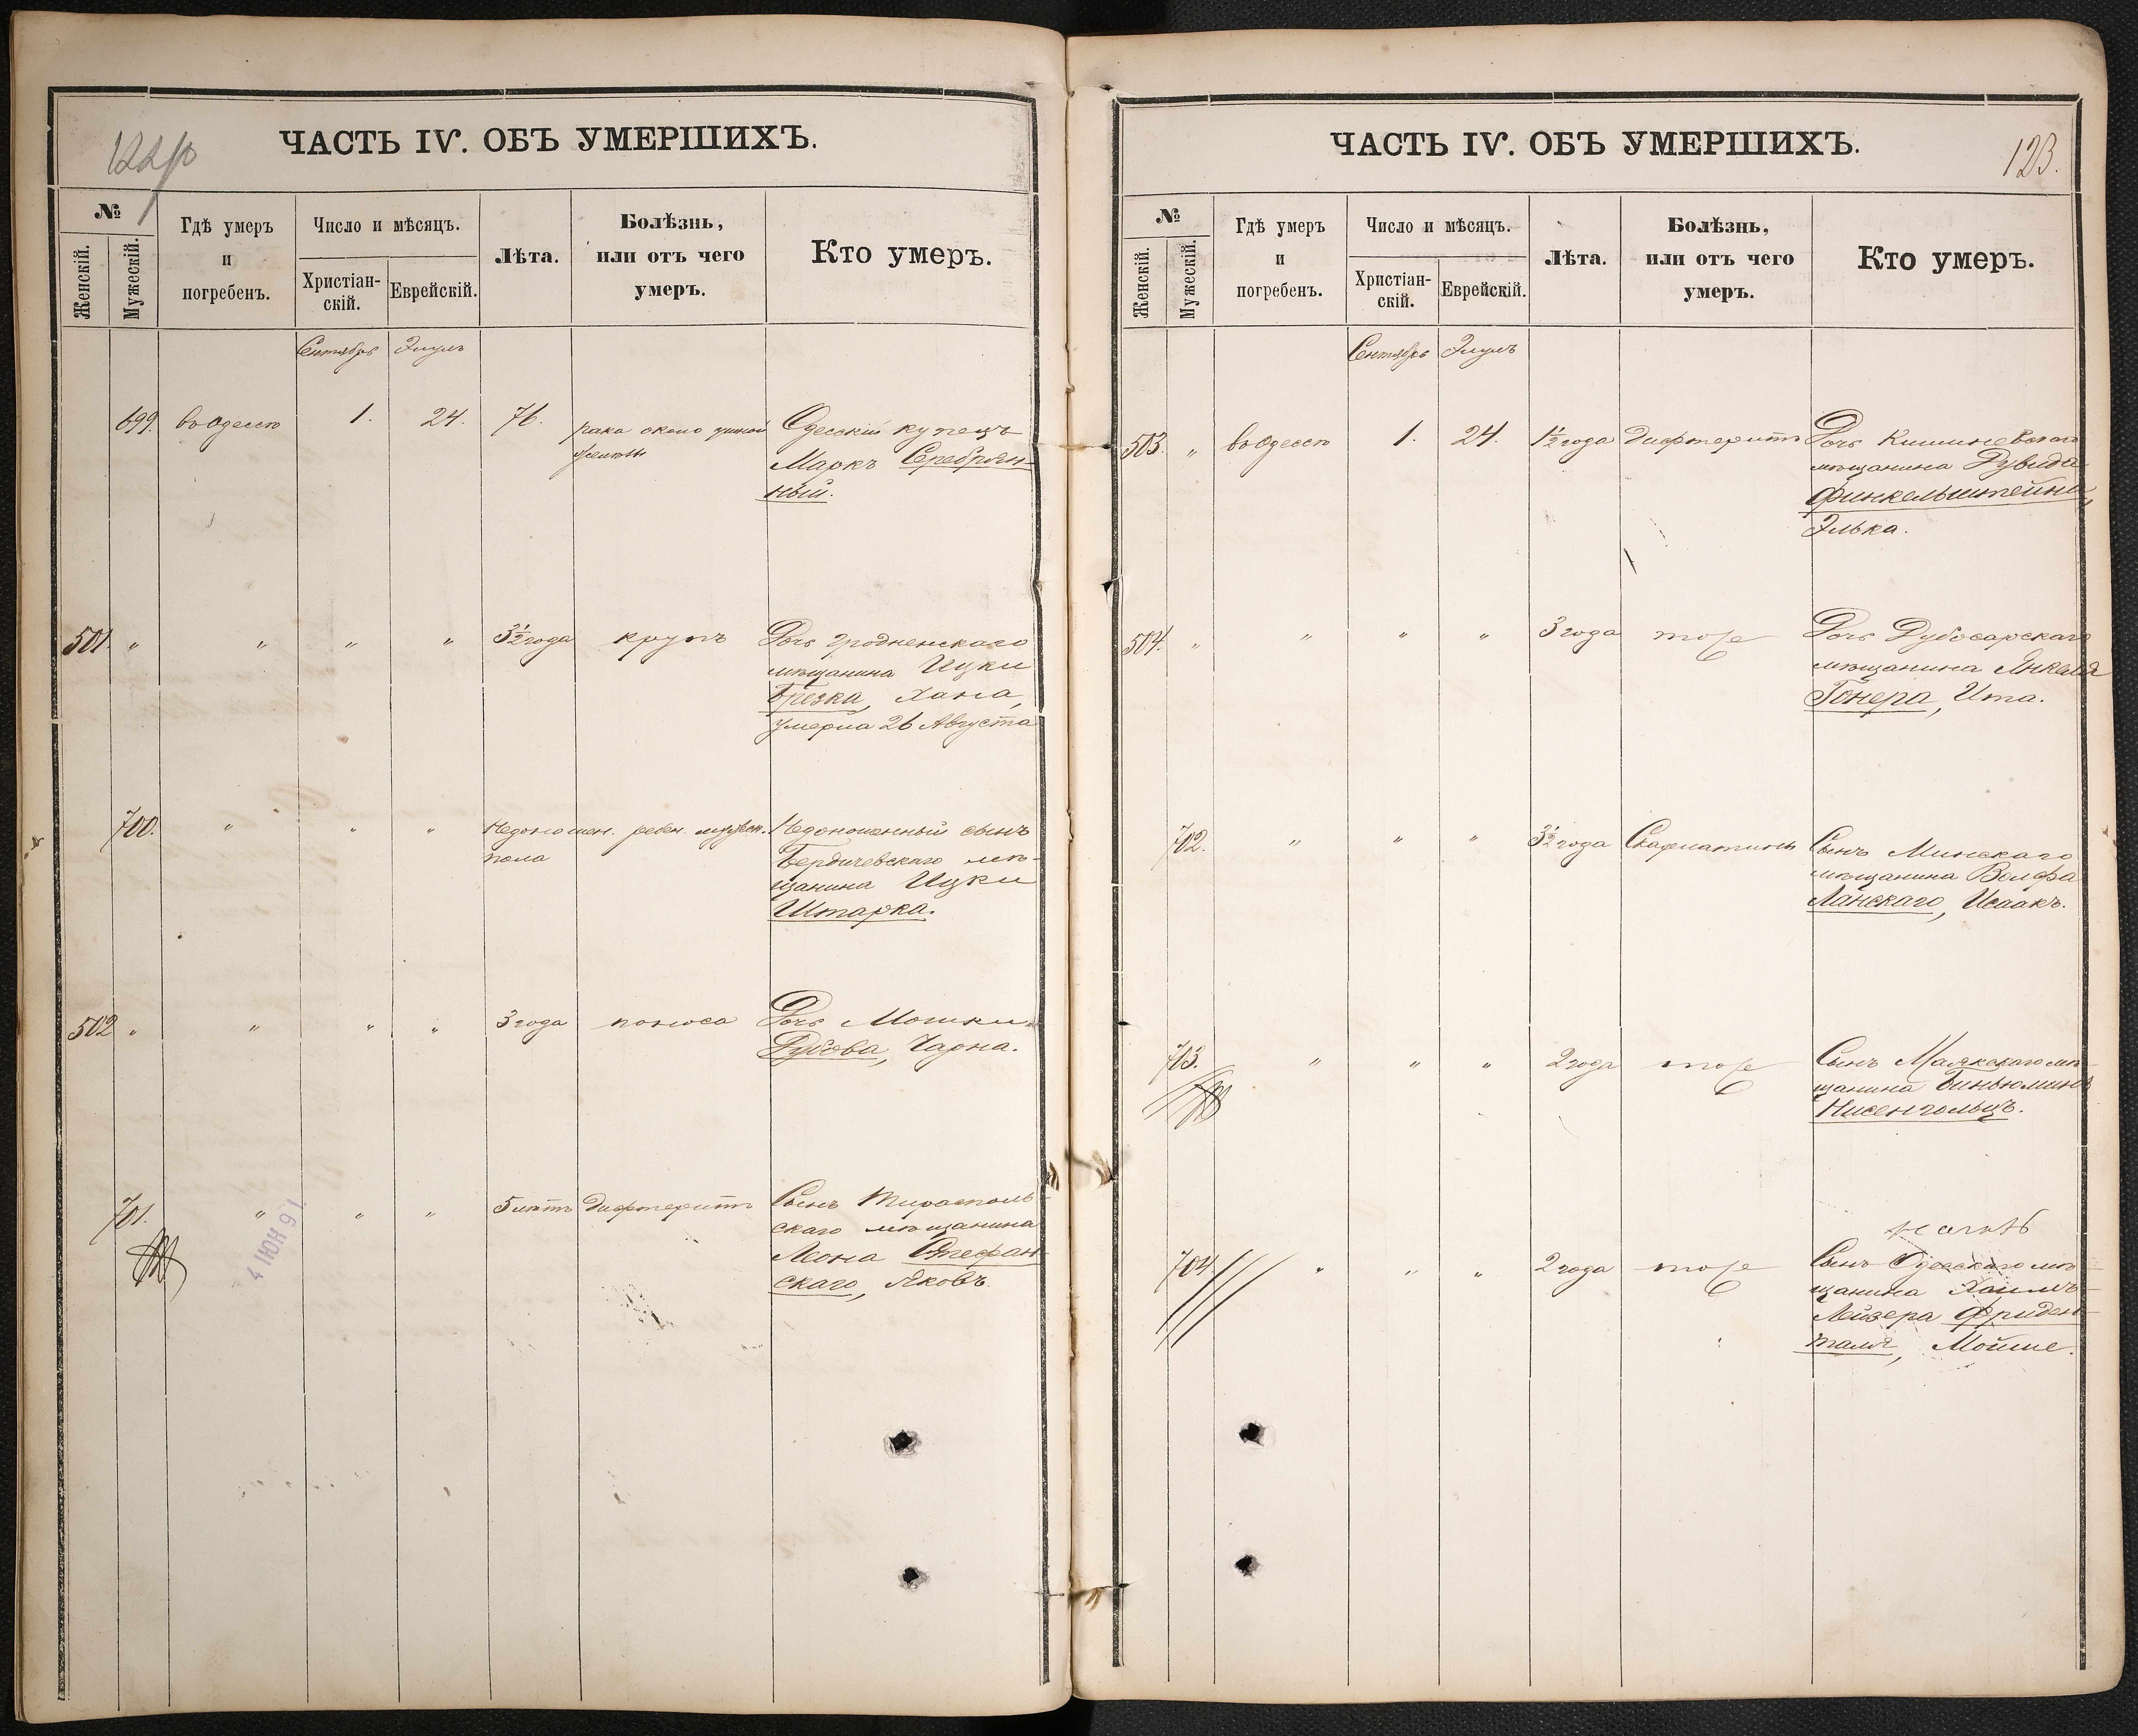 ЧАСТЬ IV. ОБЪ УМЕРШИХЪ.
№
Женскій.
Мужескій.
Гдѣ умеръ
и
погребенъ.
Число и мѣсяцъ.
Христіан-
скій.
Еврейскій.
Лѣта.
Болѣзнь,
или отъ чего
умеръ.
Кто умеръ.
Сентябрь Элулъ
699. въ Одессѣ 1. 24. 76. рака около ушной
железы
Одесскій купецъ
Маркъ Серебрян-
ный.
501 " " " " 3½ года крупъ Дочь Гродненскаго
мѣщанина Ицки
Брезка, Хана,
умерла 26 Августа
700. " " " Недоношен. ребен. мужеск.
пола
Недоношенный сынъ
Бердичевскаго мѣ-
щанина Ицки
Штарка.
502 " " " " 3 года поноса Дочь Мошки
Дубова, Чарна.
701. " " " 5 лѣтъ дифтеритъ Сынъ Тирасполь
скаго мѣщанина
Леона Стефан-
скаго, Яковъ.
4 ІЮН 91
ЧАСТЬ IV. ОБЪ УМЕРШИХЪ.
123.
№
Женскій.
Мужескій.
Гдѣ умеръ
и
погребенъ.
Число и мѣсяцъ.
Христіан-
скій.
Еврейскій.
Лѣта.
Болѣзнь,
или отъ чего
умеръ.
Кто умеръ.
Сентябрь Элулъ
503. " въ Одессѣ 1. 24. 1½ года Дифтеритъ Дочь Кишиневскаго
мѣщанина Дувида
Финкельштейна,
Элька.
504. " " " " 3 года тоже Дочь Дубосарскаго
мѣщанина Янкеля
Гонера, Ита.
702. " " " 3½ года Скарлатины Сынъ Минскаго
мѣщанина Волфа
Ланскаго, Исаакъ.
703. " " " 2 года тоже Сынъ Маякскаго мѣ-
щанина Биньюминъ
Нисенгольцъ.
704. " " " 2 года тоже Сынъ Одесскаго мѣ
щанина Хаимъ-
Лейзера Фриден-
таля, Мойше.